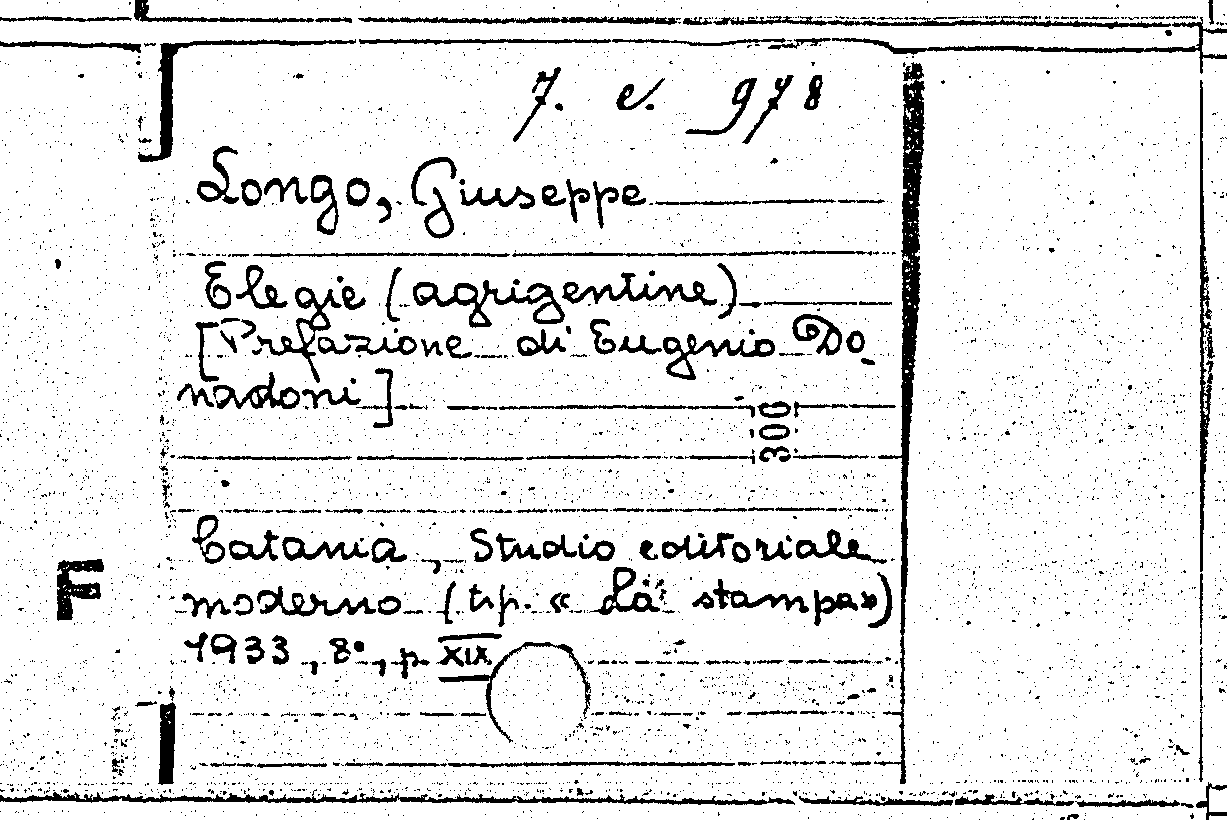 7. e. 978
Longo, Giuseppe
Elegie (agrigentine)
[Prefazione di Eugenio Do
nadoni]
300
Catania, Studio editoriale
moderno (tip. « La stampa»)
1933, 8°, p. XIX
F